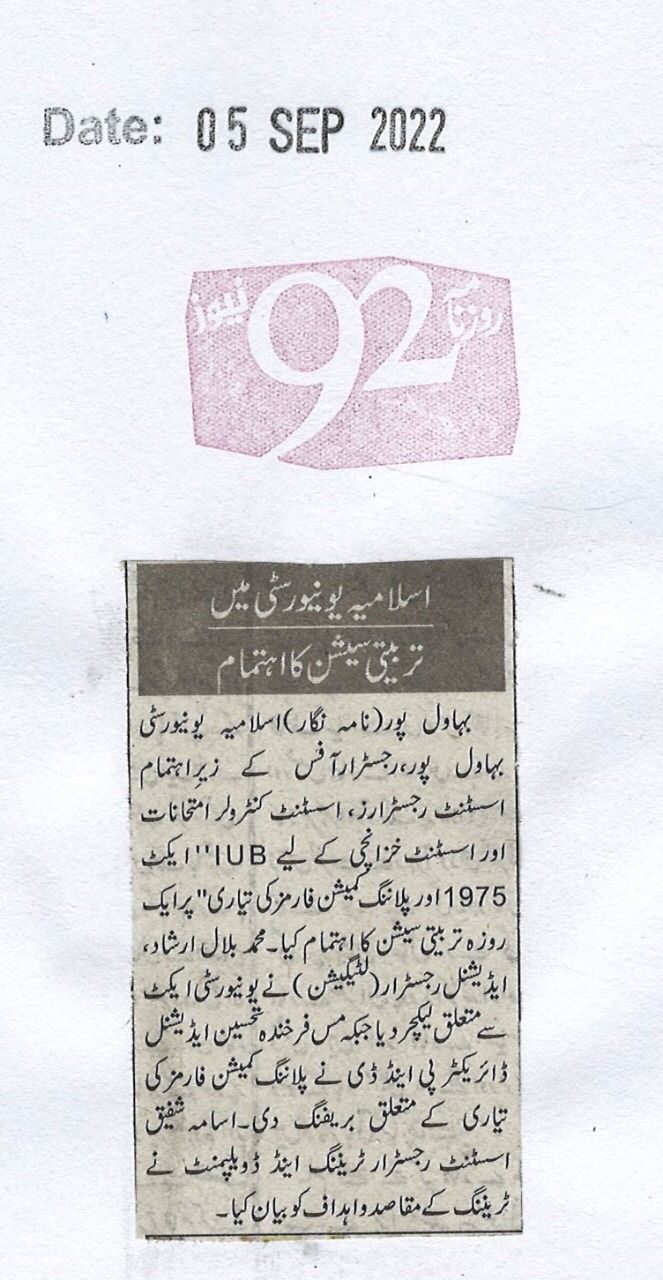 Date: 05 SEP 2022
روزنامہ 92 نیوز
اسلامیہ یونیورسٹی میں
تربیتی سیشن کا اہتمام
بہاول پور(نامہ نگار)اسلامیہ یونیورسٹی
بہاول پور،رجسٹرارآفس کے زیرِاہتمام
اسسٹنٹ رجسٹرارز، اسسٹنٹ کنٹرولر امتحانات
اور اسسٹنٹ خزانچی کے لیے IUB''ایکٹ
1975اور پلاننگ کمیشن فارمز کی تیاری" پر ایک
روزہ تربیتی سیشن کا اہتمام کیا۔محمد بلال ارشاد،
ایڈیشنل رجسٹرار(لٹیگیشن)نے یونیورسٹی ایکٹ
سے متعلق لیکچر دیا جبکہ مس فرخندہ تحسین ایڈیشنل
ڈائریکٹر پی اینڈ ڈی نے پلاننگ کمیشن فارمز کی
تیاری کے متعلق بریفنگ دی۔اسامہ شفیق
اسسٹنٹ رجسٹرار ٹریننگ اینڈ ڈویلپمنٹ نے
ٹریننگ کے مقاصد و اہداف کو بیان کیا۔